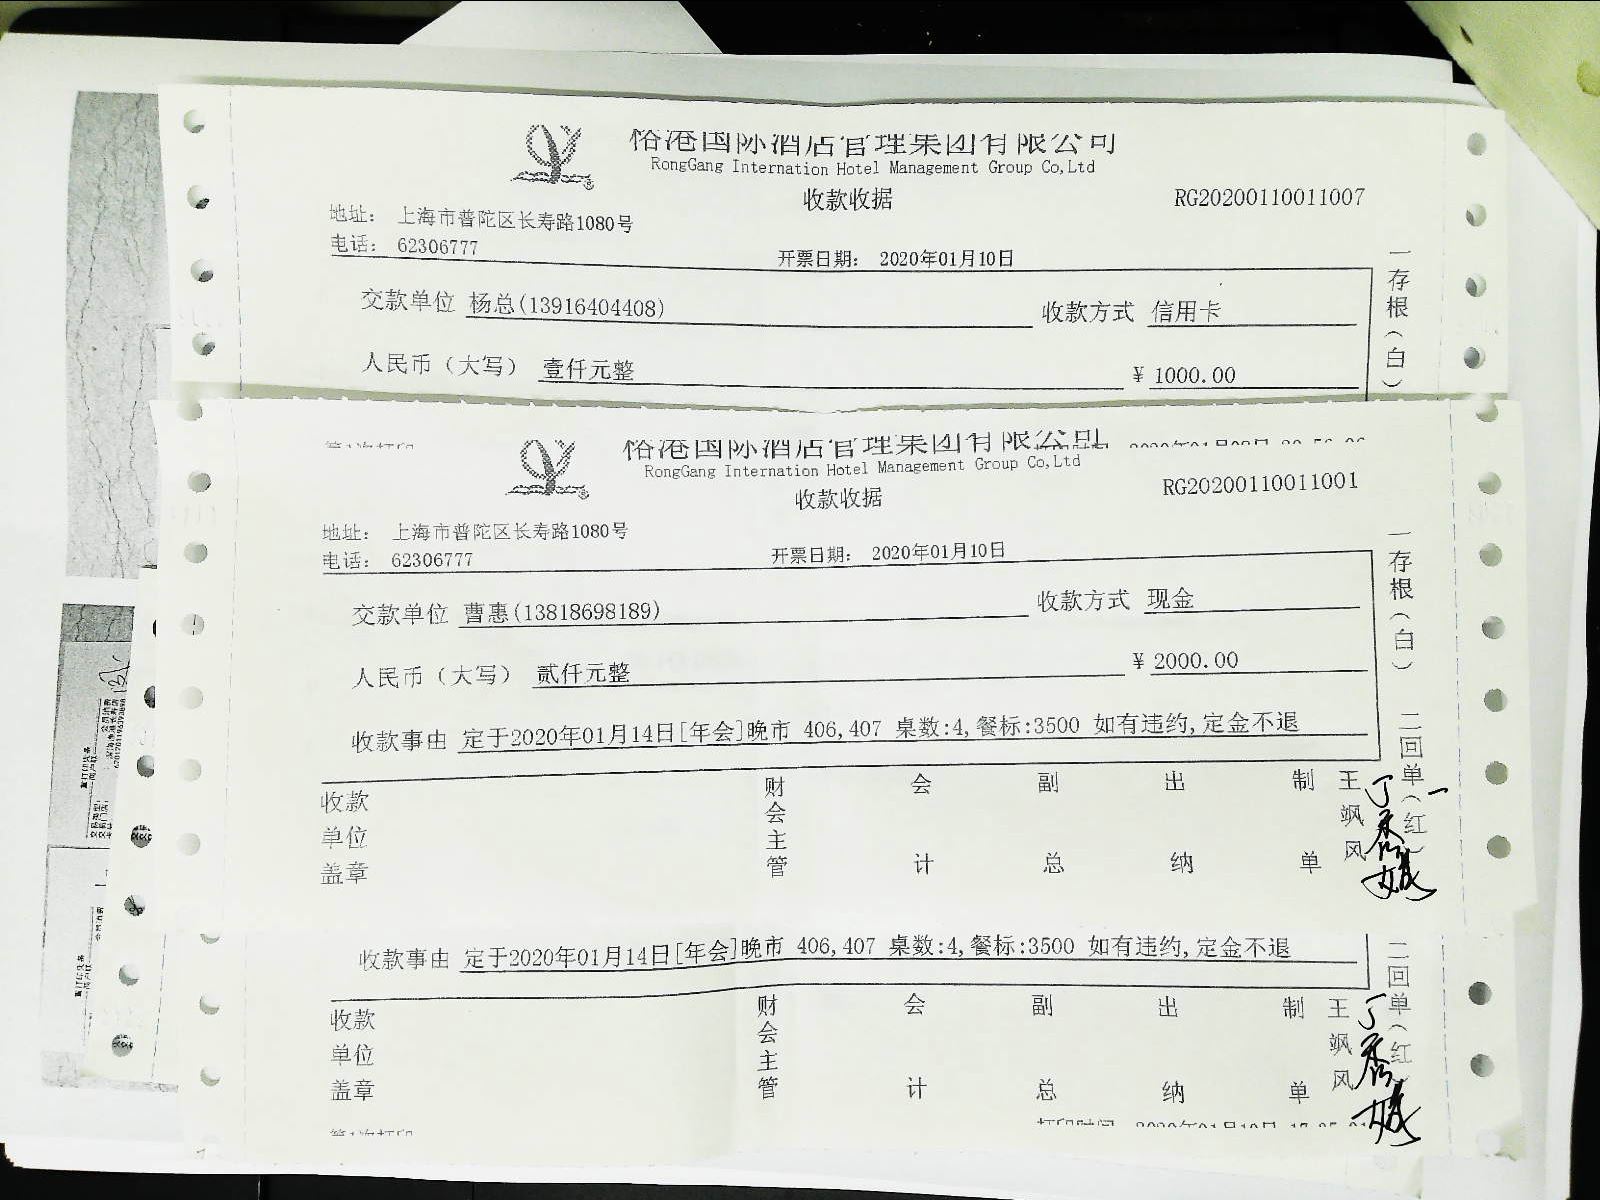 裕港国际酒店管理集团有限公司
RongGang Internation Hotel Management Group Co,Ltd
收款收据
RG20200110011007
地址： 上海市普陀区长寿路1080号
电话： 62306777
开票日期： 2020年01月10日
交款单位 杨总(13916404408)
收款方式 信用卡
人民币（大写） 壹仟元整
¥ 1000.00
一存根（白）
裕港国际酒店管理集团有限公司
RongGang Internation Hotel Management Group Co,Ltd
收款收据
RG20200110011001
地址： 上海市普陀区长寿路1080号
电话： 62306777
开票日期： 2020年01月10日
交款单位 曹惠(13818698189)
收款方式 现金
人民币（大写） 贰仟元整
¥ 2000.00
收款事由 定于2020年01月14日[年会]晚市 406,407 桌数:4,餐标:3500 如有违约,定金不退
一存根（白）
二回单（红）
收款单位盖章
财会主管
会计
副总
出纳
制单
王飒风
收款事由 定于2020年01月14日[年会]晚市 406,407 桌数:4,餐标:3500 如有违约,定金不退
二回单（红）
收款单位盖章
财会主管
会计
副总
出纳
制单
王飒风